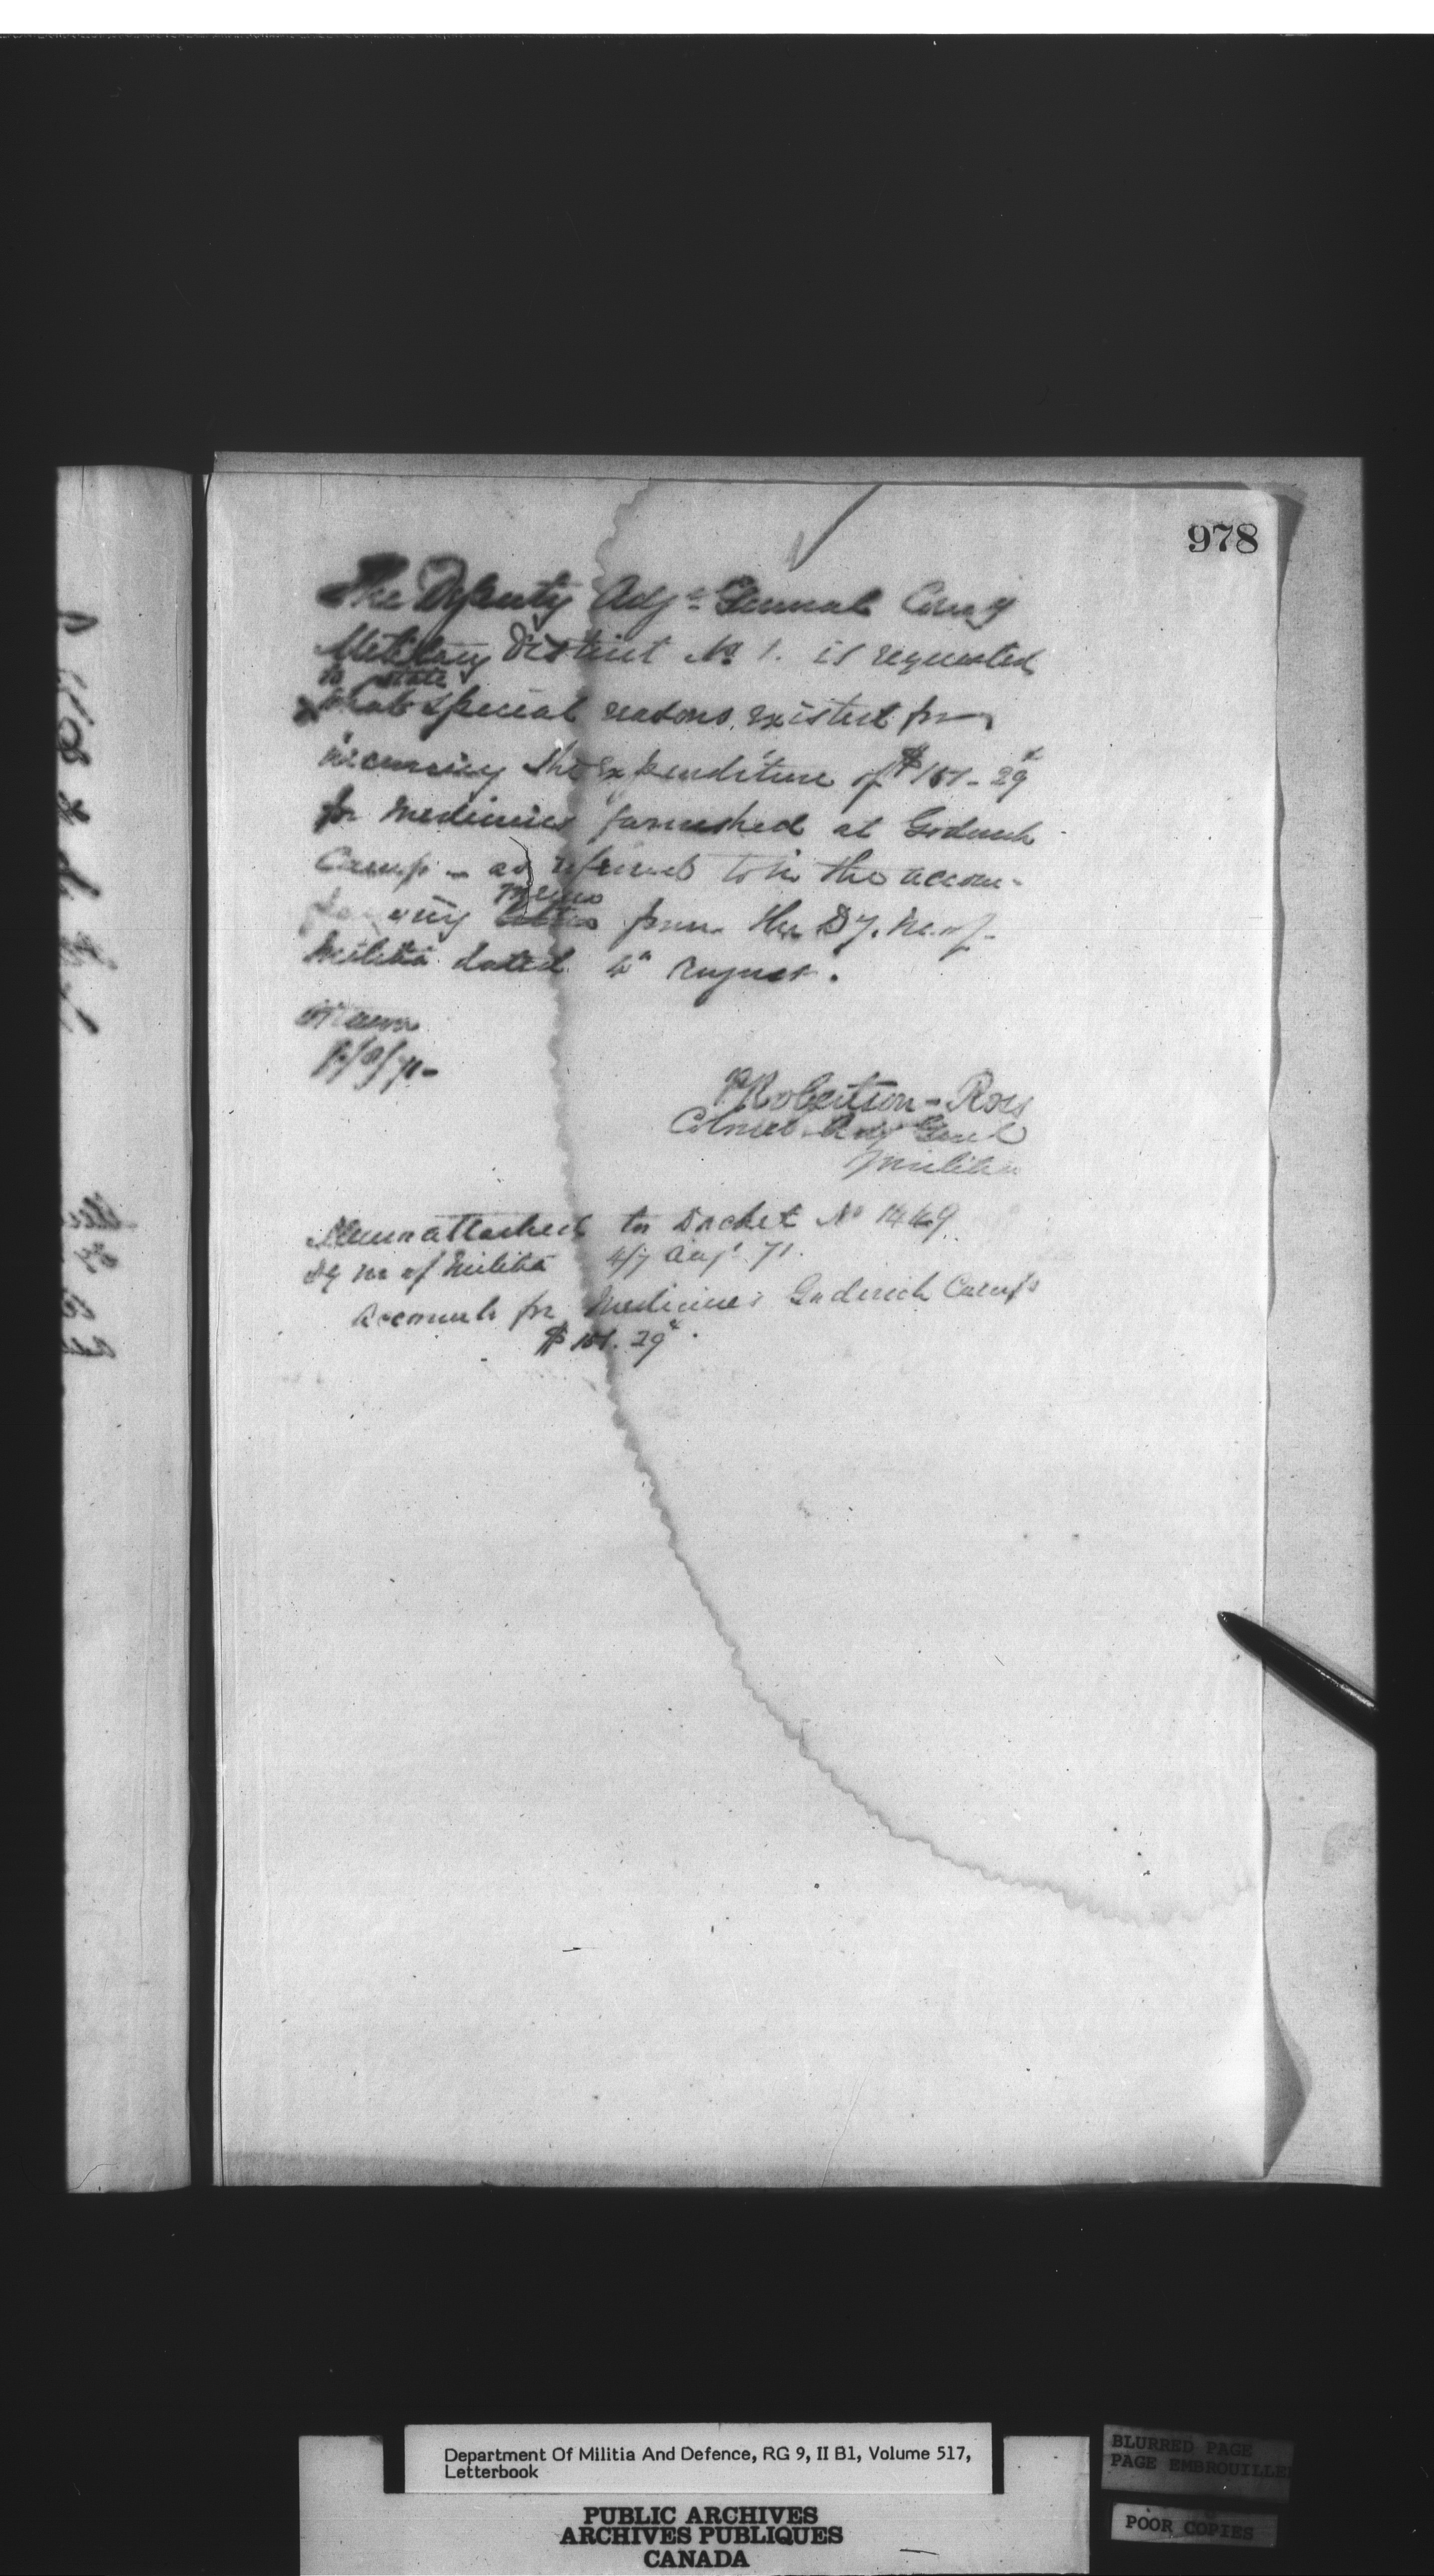 978
The Deputy Adjt General Comg
Military District No 1. is requested
to state
what special reasons existed for
incurring the expenditure of $151-29
for Medicines furnished at Goderich
Camp - as referred to in the accom-
panying memo from the Dy. M. of
Militia dated 4th August.
Ottawa
P Robertson-Ross
Colonel Adjt Genl
Militia
Memo attached to Docket No 1449
Dy M of Militia 4/7 Augt 71.
Accounts for Medicines Goderich Camp
$151.29
Department Of Militia And Defence, RG 9, II B1, Volume 517,
Letterbook
PUBLIC ARCHIVES
ARCHIVES PUBLIQUES
CANADA
BLURRED PAGE
PAGE EMBROUILLEE
POOR COPIES